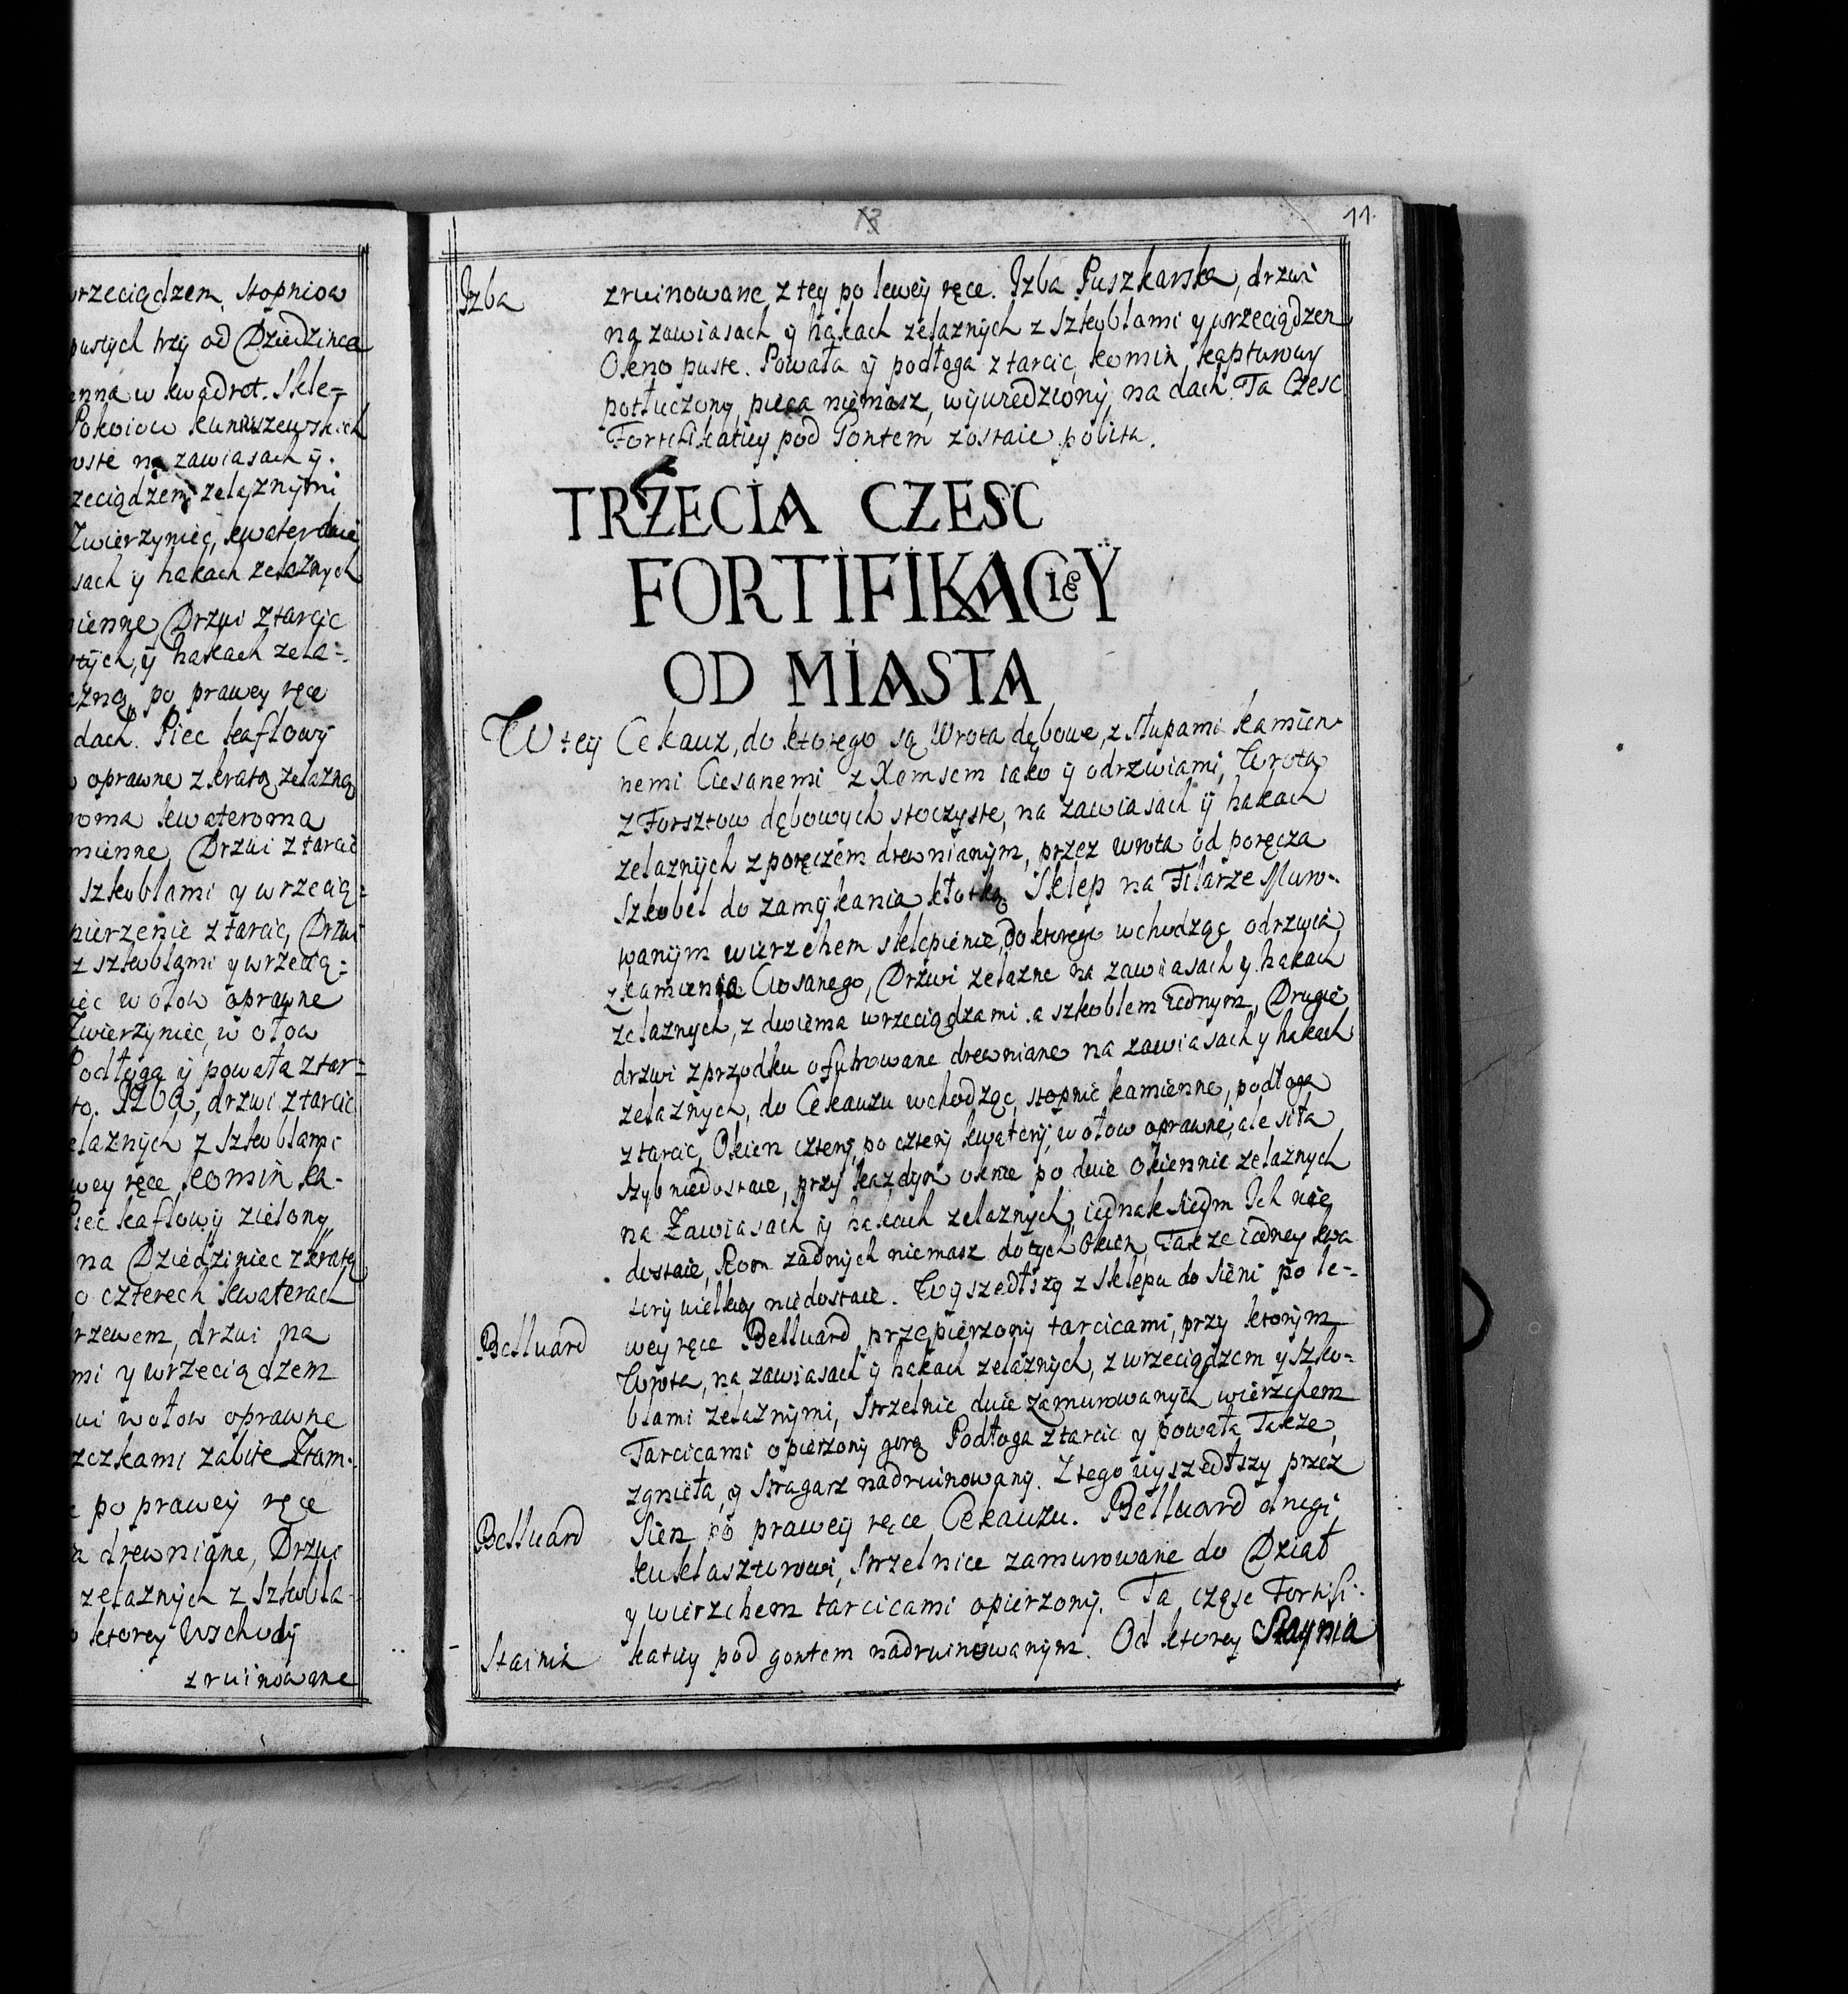 wrzeciądzem, stopniow
pustych trzy od Dziedzinca
enna w kwadrat. Skle=
Pokoiow kuniuszewskich
oste na zawiasach ÿ
zeciądzem zelaznÿmi
Zwierzyniec, kwater dwie
sach ÿ hakach zelaznych
ienne, Drzwi z tarcic
stÿch, ÿ hakach zela=
czną, po prawey ręce
dach. Piec kaflowÿ
oprawne z kratą zelazną
roma kwateroma
mienne, Drzwi z tarcic
szkoblami y wrzecią=
pierzenie z tarcic, Drzwi
z szkoblami y wrzecią=
iec w ołow oprawne
Zwierzyniec, w ołow
Podłoga ÿ powała z tar=
to. Izba, drzwi z tarcic
elaznych z szkoblami
wey ręce, komin ka-
Piec kaflowÿ zielony
na Dziedziniec z kratą
o czterech kwaterach
rzewem, drzwi na
mi y wrzeciądzem
wi w ołow oprawne
szczkami zabite Ztam-
po prawey ręce
a drewniane, Drzwi
zelaznych z szkobla-
ktorey Wschodÿ
zruinowane
13
11.
Izba zruinowane, z tey po lewey ręce. Izba Puszkarska, drzwi
na zawiasach y hakach zelaznych z szkoblami y wrzeciądzem
Okno puste. Powała ÿ podłoga z tarcic, komin kapturowy
potłuczony, pieca niemasz, wywiedziony na dach. Ta Czesc
Fortifikatiey pod Gontem zostaie pobita.
TRZECIA CZESC
FORTIFIKACieY
OD MIASTA
W tey Cekauz, do ktorego są Wrota dębowe, z słupami kamien-
nemi Ciesanemi z Xemsem iako ÿ odrzwiami, Wrota
z Forsztow dębowych stoczyste, na zawiasach ÿ hakach
zelaznÿch z poręczem drewnianym, przez wrota od poręcza
szkobel do zamÿkania kłotką Sklep na Filarze Muro-
wanÿm wierzchem sklepienie, do ktorego wchodząc odrzwia
z kamienia Ciosanego, Drzwi zelazne na zawiasach y hakach
zelaznych, z dwiema wrzeciądzami a szkoblem iednym, Drugie
drzwi z przodku ofutrowane drewniane na zawiasach y hakach
zelaznych, do Cekauzu wchodząc, stopnie kamienne, podłoga
z tarcic, Okien cztery, po cztery kwatery, w ołow oprawne, ale siła
szyb niedostaie, przy kazdym oknie po dwie okiennic zelaznych
na Zawiasach ÿ hakach zelaznych, iednak siedm Ich nie
dostaie, Krom zadnych niemasz do tych Okien, Takze iedney kwa
tery wielkiey niedostaie. Wÿszedłszy z sklepu do sieni po le-
Belluard wey ręce Belluard przepierzony tarcicami, przy ktorym
Wrota, na zawiasach ÿ hakach zelaznych, z wrzeciądzem y szko-
blami zelaznymi, Strzelnic dwie zamurowanych wierzchem
Tarcicami opierzony gorą Podłoga z tarcic y powała Takze,
zgnieła, y Stragarz nadruinowany. Z tego wyszedłszy przez
Belluard Sien po prawey ręce Cekauzu. Belluard drugi
ku klasztorowi, strzelnice zamurowane do Dział
y wierzchem tarcicami opierzony. Ta częsc Fortifi-
Stainia katiey pod gontem nadruinowanym. Od ktorey Staynia